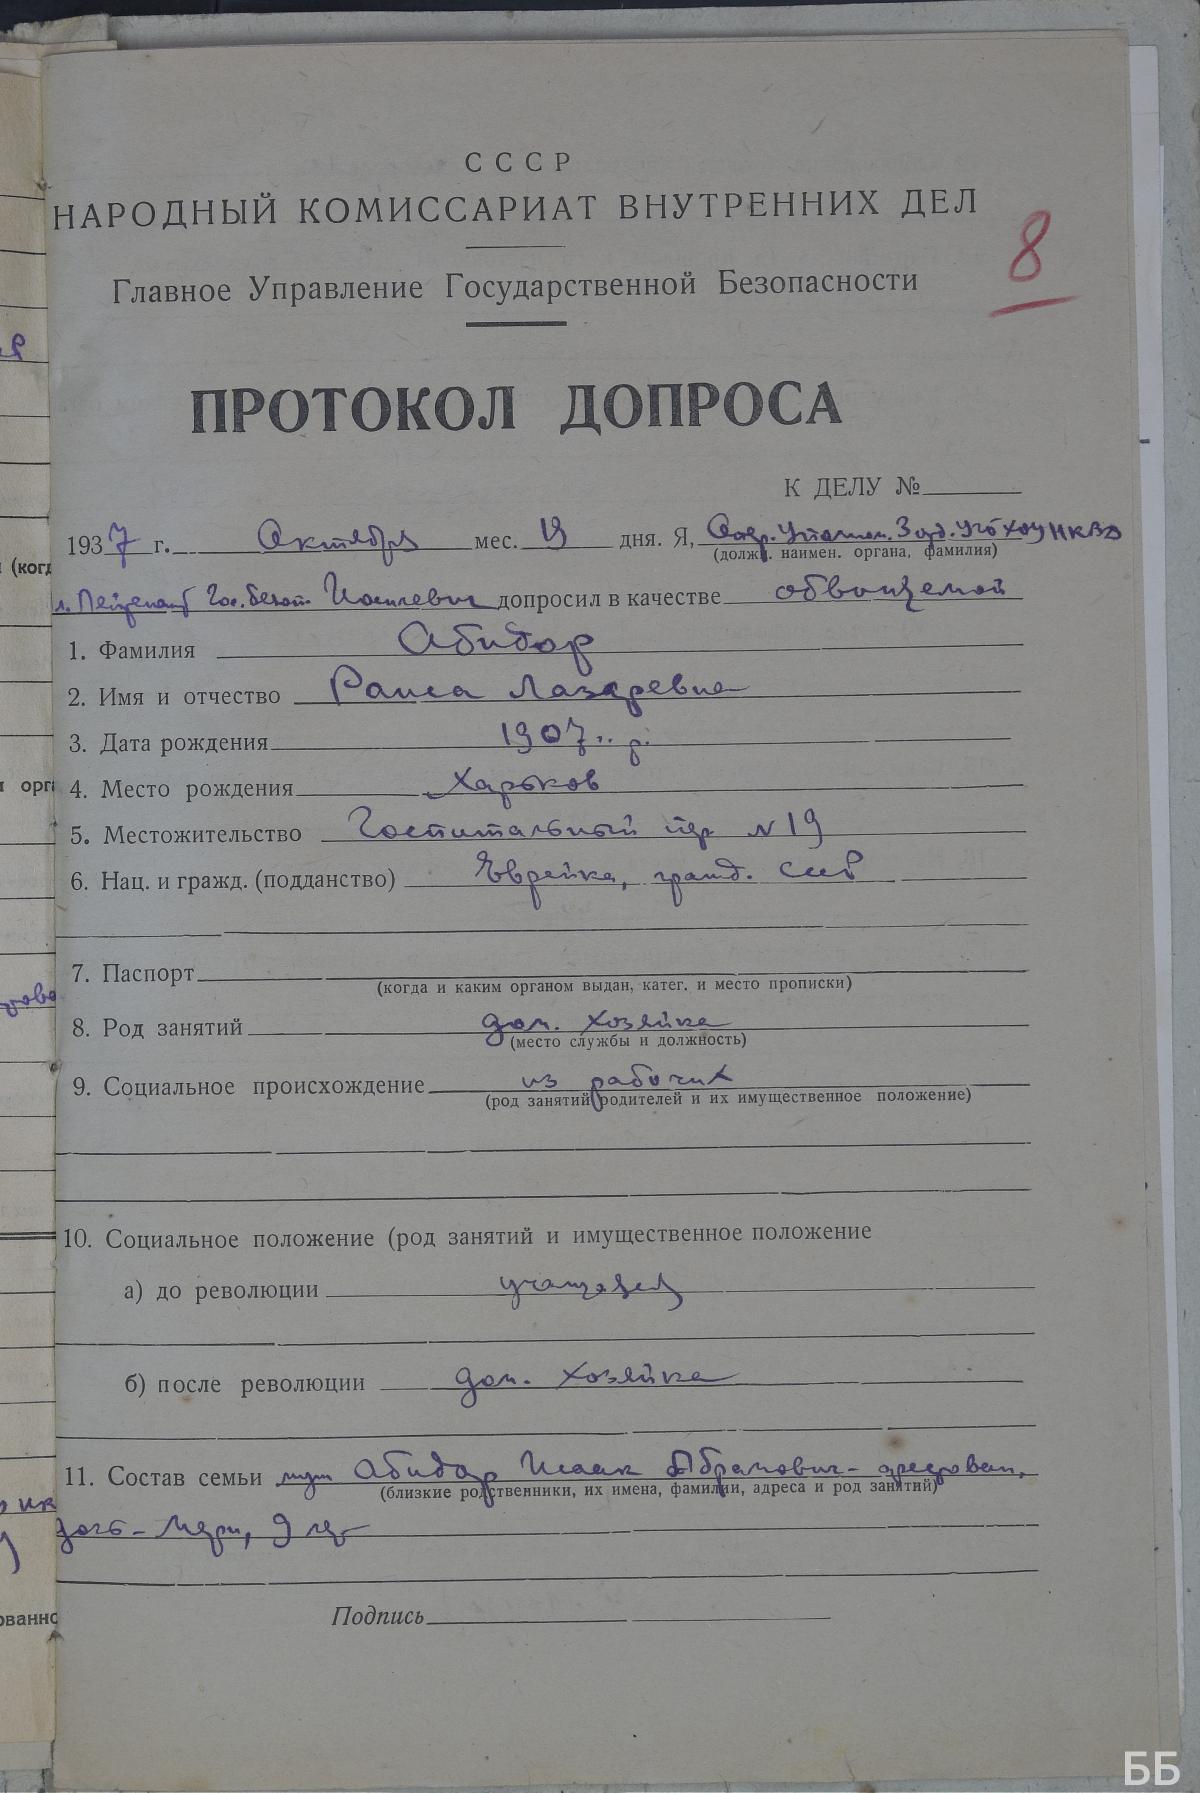 СССР
НАРОДНЫЙ КОМИССАРИАТ ВНУТРЕННИХ ДЕЛ
8
Главное Управление Государственной Безопасности
ПРОТОКОЛ ДОПРОСА
К ДЕЛУ №
1937 г. Октября мес. 19 дня. Я, Опер. Уполном. 3 отд. УГБ ХОУ НКВД
(должн. наимен. органа, фамилия)
л. Лейтенант Гос. безоп. допросил в качестве обвиняемой
1. Фамилия Абидор
2. Имя и отчество Раиса Лазаревна
3. Дата рождения 1907 г. р.
4. Место рождения Харьков
5. Местожительство Госпитальный пер № 19
6. Нац. и гражд. (подданство) Еврейка, гражд. СССР
7. Паспорт
(когда и каким органом выдан, катег. и место прописки)
8. Род занятий дом. хозяйка
(место службы и должность)
9. Социальное происхождение из рабочих
(род занятий родителей и их имущественное положение)
10. Социальное положение (род занятий и имущественное положение
а) до революции учащаяся
б) после революции дом. хозяйка
11. Состав семьи муж Абидор Исаак Абрамович - арестован,
(близкие родственники, их имена, фамилии, адреса и род занятий)
дочь - Мери, 9 лет
Подпись
ББ